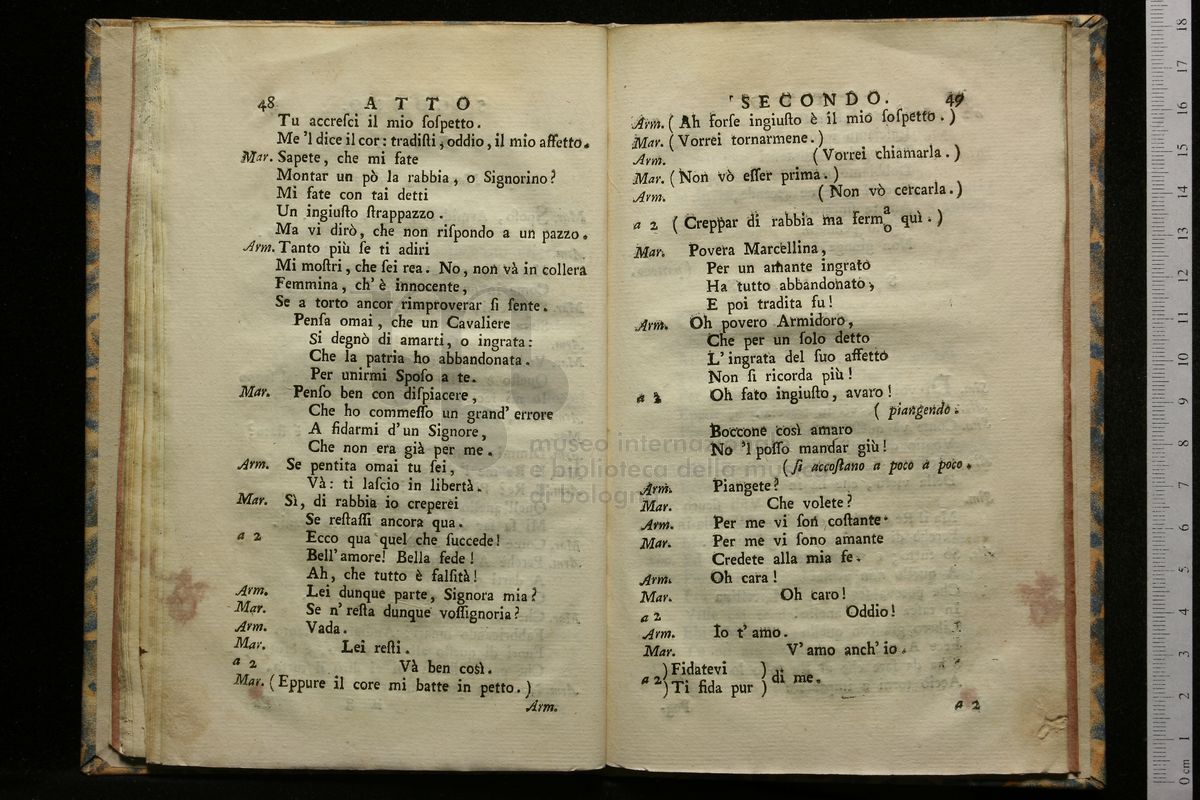 48 ATTO
Tu accreſci il mio ſoſpetto.
Me 'l dice il cor: tradiſti, oddio, il mio affetto.
Mar. Sapete, che mi fate
Montar un pò la rabbia, o Signorino?
Mi fate con tai detti
Un ingiuſto ſtrappazzo.
Ma vi dirò, che non riſpondo a un pazzo.
Arm. Tanto più ſe ti adiri
Mi moſtri, che ſei rea. No, non và in collera
Femmina, ch' è innocente,
Se a torto ancor rimproverar ſi ſente.
Penſa omai, che un Cavaliere
Si degnò di amarti, o ingrata:
Che la patria ho abbandonata.
Per unirmi Spoſo a te.
Mar. Penſo ben con diſpiacere,
Che ho commeſſo un grand' errore
A fidarmi d'un Signore,
Che non era già per me.
Arm. Se pentita omai tu ſei,
Và: ti laſcio in libertà.
Mar. Sì, di rabbia io creperei
Se reſtaſſi ancora qua.
a 2 Ecco qua quel che ſuccede!
Bell' amore! Bella fede!
Ah, che tutto è falſità!
Arm. Lei dunque parte, Signora mia?
Mar. Se n' reſta dunque voſſignoria?
Arm. Vada.
Mar. Lei reſti.
a 2 Và ben così.
Mar. (Eppure il core mi batte in petto.)
Arm.
SECONDO. 49
Arm. (Ah forſe ingiuſto è il mio ſoſpetto.)
Mar. (Vorrei tornarmene.)
Arm. (Vorrei chiamarla.)
Mar. (Non vò eſſer prima.)
Arm. (Non vò cercarla.)
a 2 (Creppar di rabbia ma ferm a/o quì.)
Mar. Povera Marcellina,
Per un amante ingrato
Ha tutto abbandonato,
E poi tradita fu!
Arm. Oh povero Armidoro,
Che per un ſolo detto
L' ingrata del ſuo affetto
Non ſi ricorda più!
a 2 Oh fato ingiuſto, avaro!
(piangendo.
Boccone così amaro
No 'l poſſo mandar giù!
(ſi accoſtano a poco a poco.
Arm. Piangete?
Mar. Che volete?
Arm. Per me vi ſon coſtante.
Mar. Per me vi ſono amante
Credete alla mia fe.
Arm. Oh cara!
Mar. Oh caro!
a 2 Oddio!
Arm. Io t' amo.
Mar. V' amo anch' io.
a 2 )Fidatevi ) di me.
)Ti fida pur )
a 2
museo internazionale
e biblioteca della musica
di bologna
0 cm 1 2 3 4 5 6 7 8 9 10 11 12 13 14 15 16 17 18